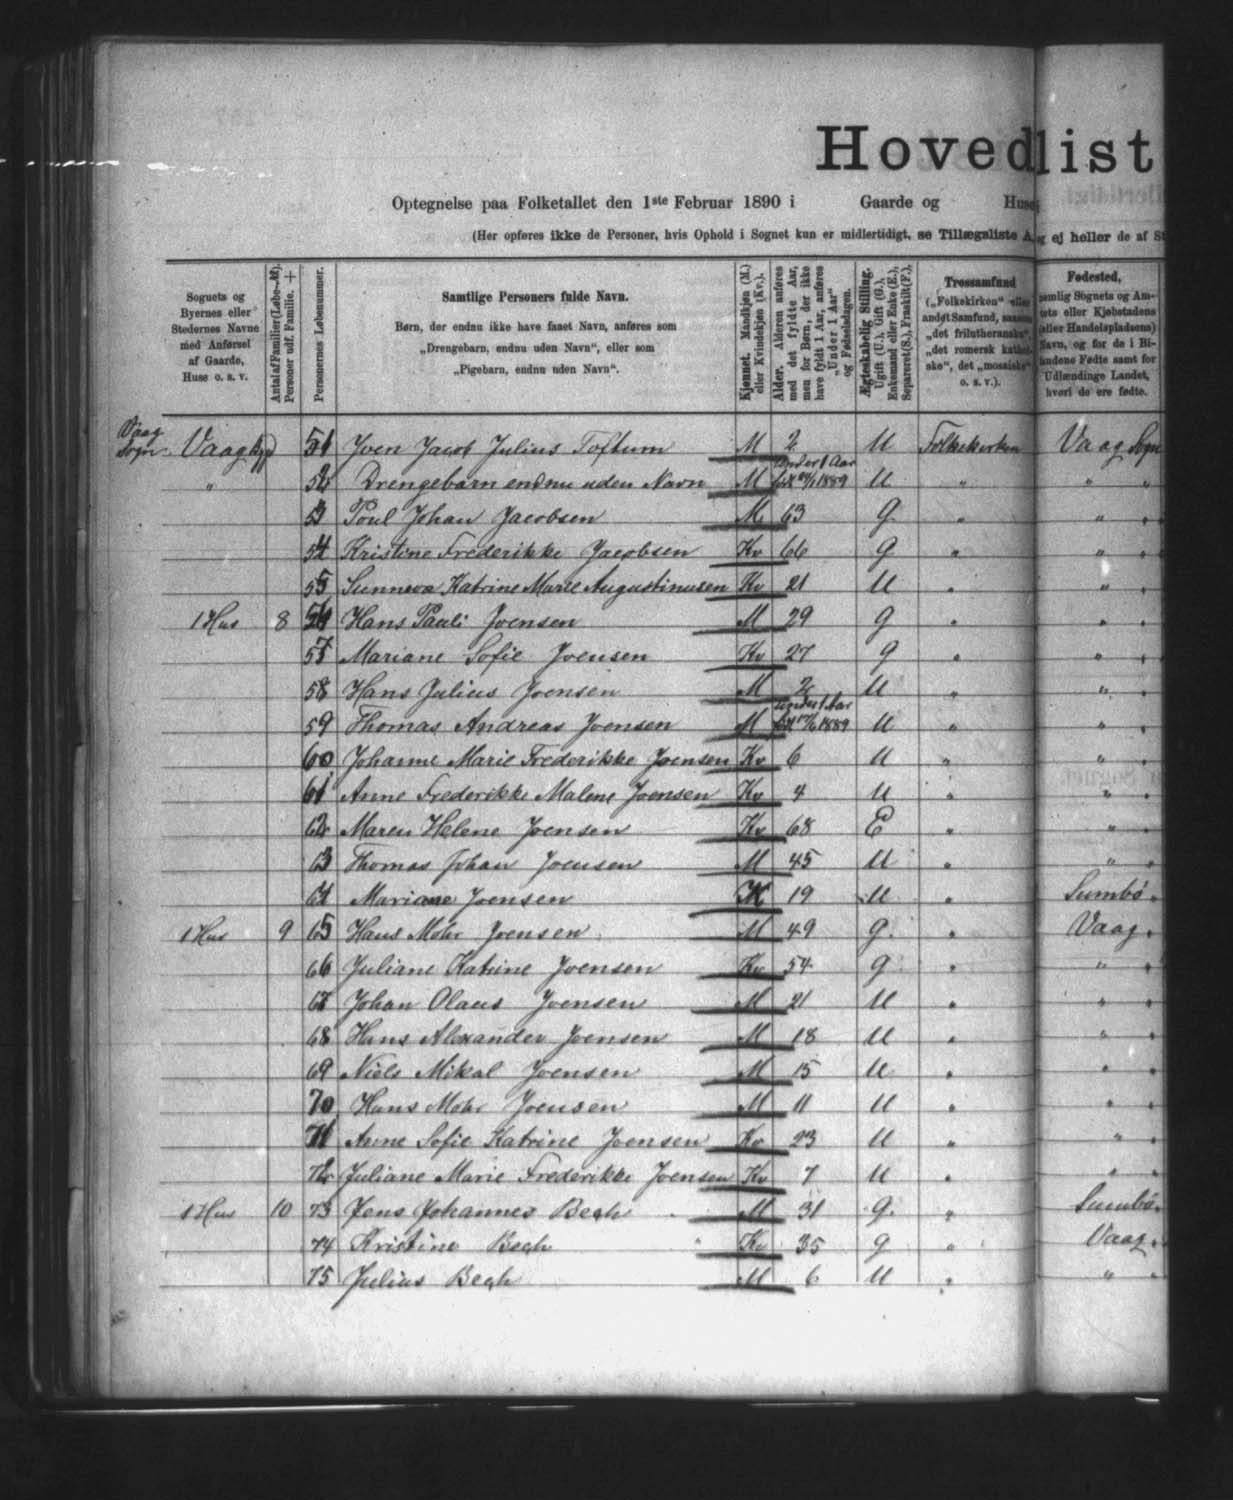 Hovedlist
Optegnelse paa Folketallet den 1ste Februar 1890 i Gaarde og Huse
(Her opføres ikke de Personer, hvis Ophold i Sognet kun er midlertidigt, se Tillægsliste A, og ej heller de af St
Sognets og Byernes eller Stedernes Navne med Anførsel af Gaarde, Huse o. s. v.
Antal af Familier (Løbe-№). Personer udf. Familie. +
Personernes Løbenummer.
Samtlige Personers fulde Navn.
Børn, der endnu ikke have faaet Navn, anføres som
„Drengebarn, endnu uden Navn“, eller som
„Pigebarn, endnu uden Navn“.
Kjønnet. Mandkjøn (M.) eller Kvindekjøn (Kv.).
Alder. Alderen anføres med det fyldte Aar, men for Børn, der ikke have fyldt 1 Aar, anføres „Under 1 Aar“ og Fødselsdagen.
Ægteskabelig Stilling. Ugift (U.), Gift (G.), Enkemand eller Enke (E.), Separeret (S.), Fraskilt (F.).
Trossamfund („Folkekirken“ eller andet Samfund, saasom „det frilutheranske“, „det romersk katholske“, det „mosaiske“ o. s. v.).
Fødested, nemlig Sognets og Amtets eller Kjøbstadens (eller Handelspladsens) Navn, og for de i Bilandene Fødte samt for Udlændinge Landet, hvori de ere fødte.
Vaag Sogn
Vaagbyd 51 Joen Jacob Julius Toftum M 2 U Folkekirken Vaag Sogn
" 52 Drengebarn endnu uden Navn M under 1 Aar 1889 U " " "
53 Poul Johan Jacobsen M 63 G " " "
54 Kristine Frederikke Jacobsen Kv 66 G " " "
55 Sunneva Katrine Marie Augustinusen Kv 21 U " "
1 Hus 8 56 Hans Pauli Joensen M 29 G " " "
57 Mariane Sofie Joensen Kv 27 G " " "
58 Hans Julius Joensen M 2 U " " "
59 Thomas Andreas Joensen M under 1 Aar 1889 U " " "
60 Johanne Marie Frederikke Joensen Kv 6 U " " "
61 Anne Frederikke Malene Joensen Kv 4 U " " "
62 Maren Helene Joensen Kv 68 E " " "
63 Thomas Johan Joensen M 45 U " " "
64 Mariane Joensen K 19 U " Sumbø "
1 Hus 9 65 Hans Mohr Joensen M 49 G " Vaag "
66 Juliane Katrine Joensen Kv 54 G " " "
67 Johan Olaus Joensen M 21 U " " "
68 Hans Alexander Joensen M 18 U " " "
69 Niels Mikal Joensen M 15 U " " "
70 Hans Mohr Joensen M 11 U " " "
71 Anne Sofie Katrine Joensen Kv 23 U " " "
72 Juliane Marie Frederikke Joensen Kv 7 U " " "
1 Hus 10 73 Jens Johannes Bech M 31 G " Sumbø "
74 Kristine Bech Kv 35 G " Vaag "
75 Julius Bech M 6 U " " "